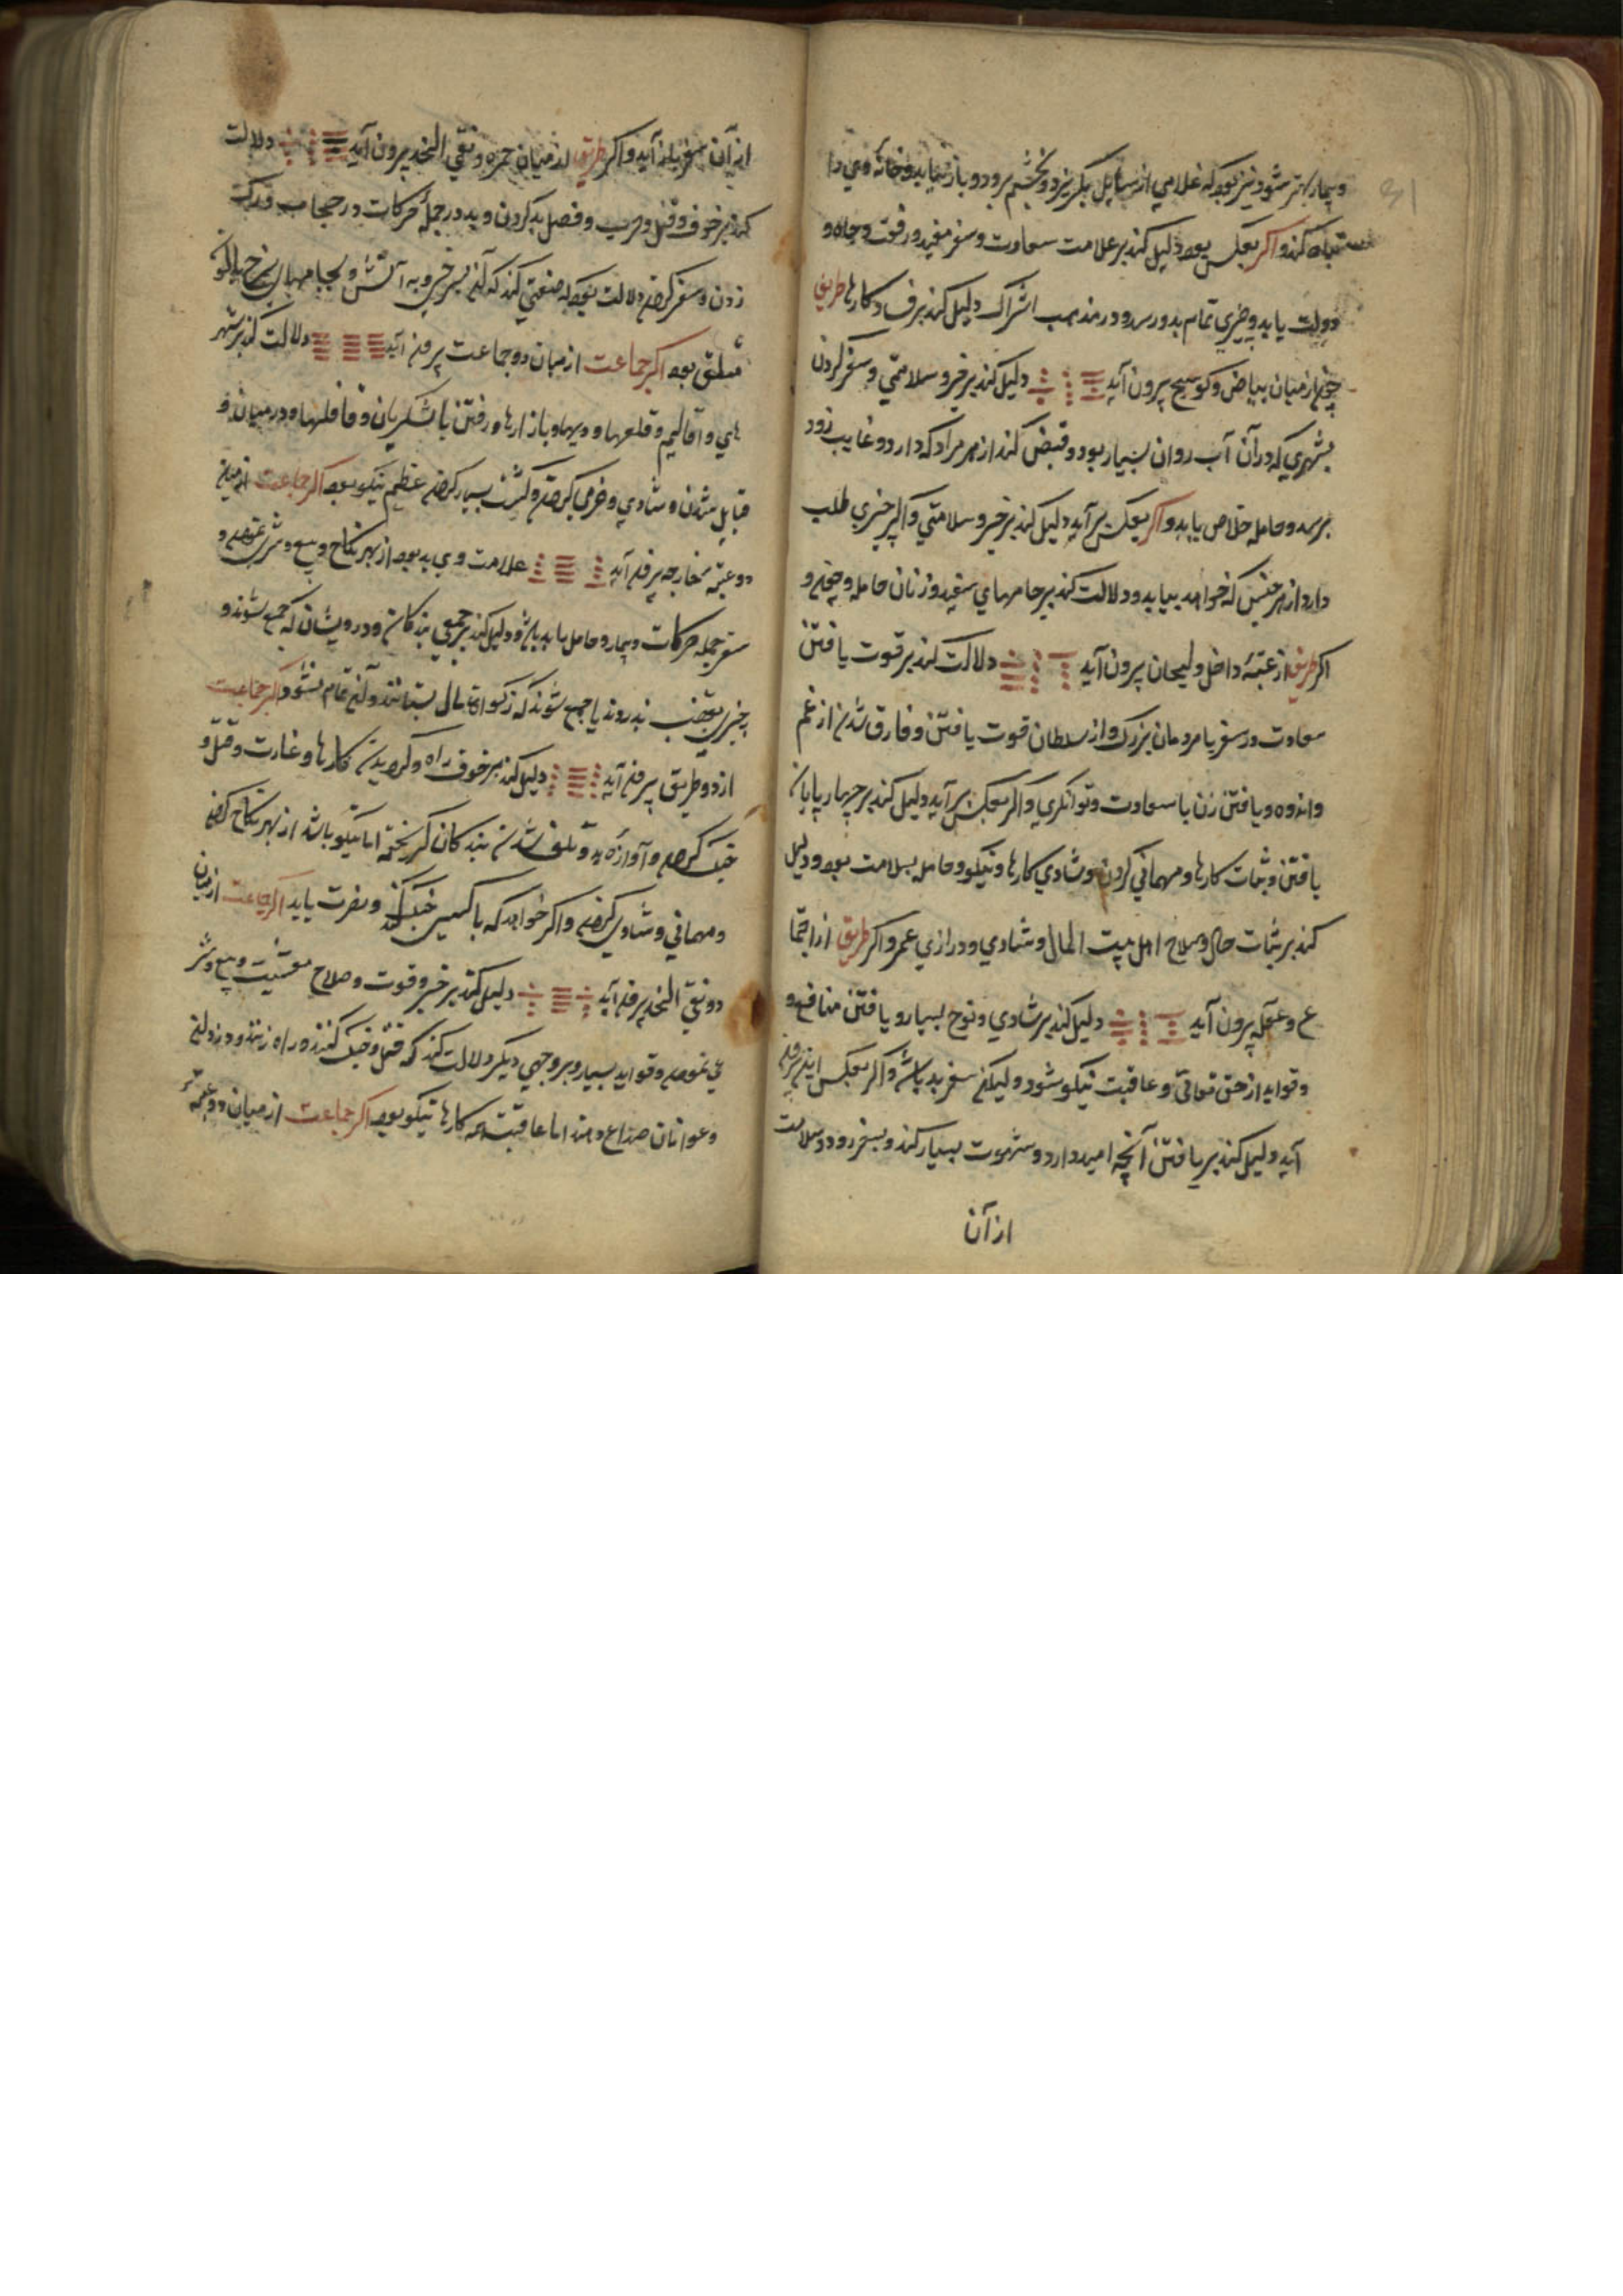 و بیمار بتر شود و نیز بود که غلامی از سایل بگریزد و بخشم برود و باز نیاید و خانه وی را
تباه کند و اکر بعکس بود دلیل کند بر علامت سعادت و سفر مفید و رفوت و جاه و
دولت یابد و چیزی تمام بدو رسد و در مذهب اشراک دلیل کند برف د کارها طریق
چون از میان بیاض و کوسج بیرون آید دلیل کند بر خیر و سلامتی و سفر کردن
بشهری که در آن آب روان بسیار بود و قبض کند از هر مراد که دارد و غایب زود
برسد و حامله خلاص یابد و اکر بعکس بر آید دلیل کند بر خیر و سلامتی و اکر چیزی طلب
دارد از هر جنس که خواهد بیابد و دلالت کند بر جامهای سفید و زنان حامله و
اکر طریق از عتبهٔ داخل و لیحان بیرون آید دلالت کند بر قوت یافتن
سعادت در سفر با مردمان بزرک و از سلطان قوت یافتن و فارق شدن از غم
و اندوه و یافتن زن با سعادت و توانکری و اکر بعکس بر آید دلیل کند بر چهار پایان
یافتن و ثبات کارها و مهمانی کردن و شادی کارها و نیکو و حامله بسلامت بود و دلیل
کند بر ثبات حال و صلاح اهل بیت المال و شادی و درازی عمر و اکر طریق از اجتما
ع و عقله بیرون آید دلیل کند بر شادی و بسیار و یافتن منافع و
و فواید از حق تعالی و عاقبت نیکو شود و لیکن سفر بد باشد و اکر بعکس این برون
آید دلیل کند بر یافتن آنچه امید دارد و شهوت بسیار کند و بسفر رود و سلامت
از آن
از آن سفر باز آید و اکر طریق از میان حمره و نقی الخد بیرون آید دلالت
کند بر خوف و قتل و و فصل بد کردن و بد در جمله حرکات و در حجاب و رک
زدن و سفر کردن و دلالت بود که صنعتی کند که آن بسرخی و به آتش و بجامهای سرخ
متعلق بود اکر جماعت از میان دو جماعت برون آید دلالت کند بر شهر
های و اقالیم و قلعها و دیها و بازارها و رفتن با لشکریان و قافلها و در میان
قبایل شدن و شادی و خرمی کردن و کشت بسیار کردن عظیم نیکو بود اکر جماعت از میان
دو عتبهٔ خارجه برون آید علامت وی بد بود از بهر نکاح و بیع و شری و
سفر جمله حرکات و بیمار و حامل را بد باشد و دلیل کند بر جمعی بندکان و درویشان که جمع شوند و
چیزی بغصب ندروند یا جمع شوند که زکوة مال بستانند و آن تمام نشود اکر جماعت
از دو طریق برون آید دلیل کند بر خوف راه و کارها و غارت و قتل و
جنک کردن و آوازه بد و تلف شدن بندکان کریخته اما نیکو باشد از بهر نکاح کردن
و مهمانی و شادی کردن و اکر خواهد که با کسی جنک کند و نصرت یابد اکر جماعت از میان
دو نقی الخد برون آید دلیل کند بر خیر و قوت و صلاح معیشت و بیع و شر
ی نمودن و فواید بسیار و بر وجهی دیکر دلالت کند که قتل و جنک کنند و راه زنند و دزدان
و عوانان صداع دهند اما عاقبت همه کارها نیکو بود اکر جماعت از میان دو عتبه